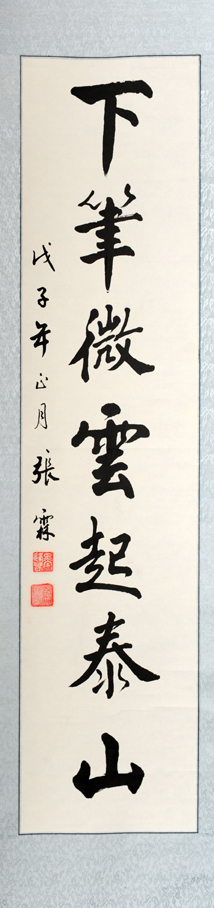 下筆微雲起泰山
戊子年正月張霖